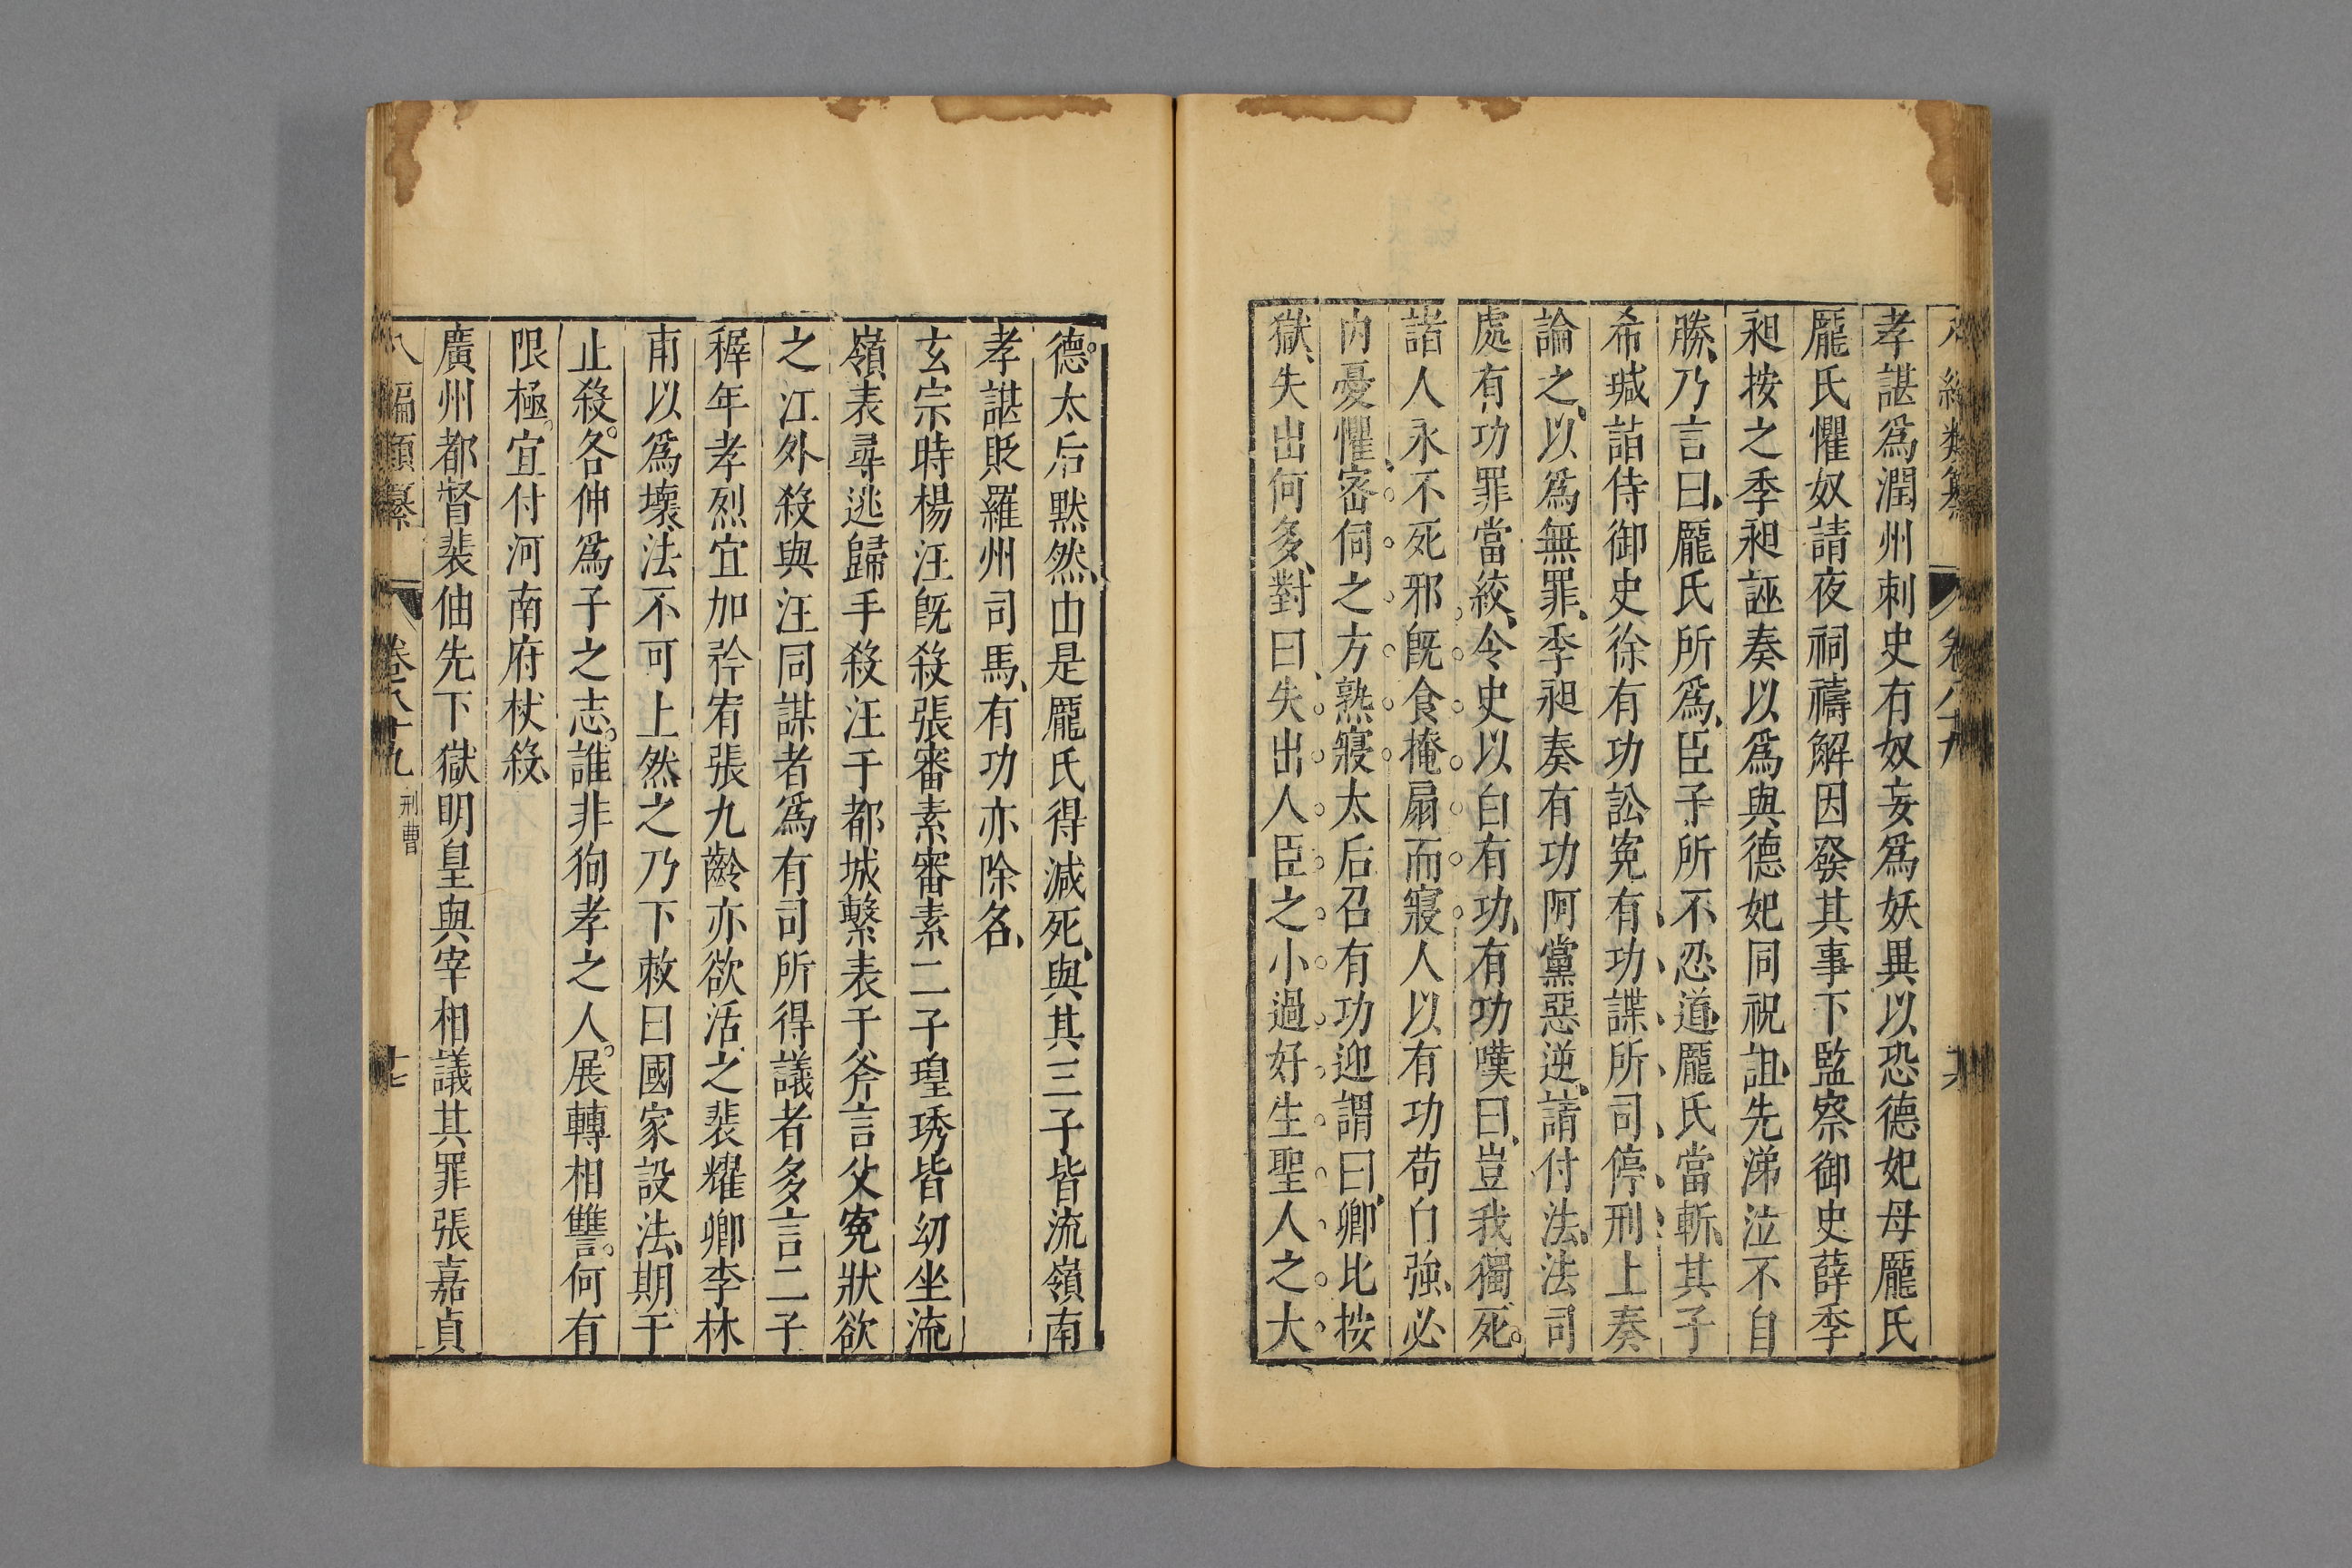 孝諶爲潤州刺史有奴妄爲妖異以恐德妃母龎氏
龎氏懼奴請夜祠禱解因發其事下監察御史薛季
昶按之季昶誣奏以爲與德妃同祝詛先涕泣不自
勝、乃言曰、龎氏所爲、臣子所不忍道、龎氏當斬、其子
希瑊詣侍御史徐有功訟寃有功諜所司停刑上奏
論之、以爲無罪、季昶奏有功阿黨惡逆、請付法、法司
處有功罪當絞、令史以白有功、有功嘆曰、豈我獨死。
諸人永不死邪旣食掩扇而寢人以有功苟自強、必
內憂懼、密伺之方熟寢太后召有功迎謂曰、卿比按
獄、失出何多、對曰、失出人臣之小過好生聖人之大
德。太后默然、由是龎氏得減死、與其三子皆流嶺南
孝諶貶羅州司馬、有功亦除名、
玄宗時楊汪旣殺張審素審素二子瑝琇皆幼坐流
嶺表尋逃歸手殺汪于都城繫表于斧言父寃狀欲
之江外殺與汪同謀者爲有司所得議者多言二子
穉年孝烈宜加矜宥張九齡亦欲活之裴耀卿李林
甫以爲壞法不可上然之乃下敕曰國家設法、期于
止殺。各伸爲子之志。誰非狥孝之人。展轉相讐。何有
限極。宜付河南府杖殺、
廣州都督裴伷先下獄明皇與宰相議其罪張嘉貞
八編類纂 卷八十九 刑曹 十七